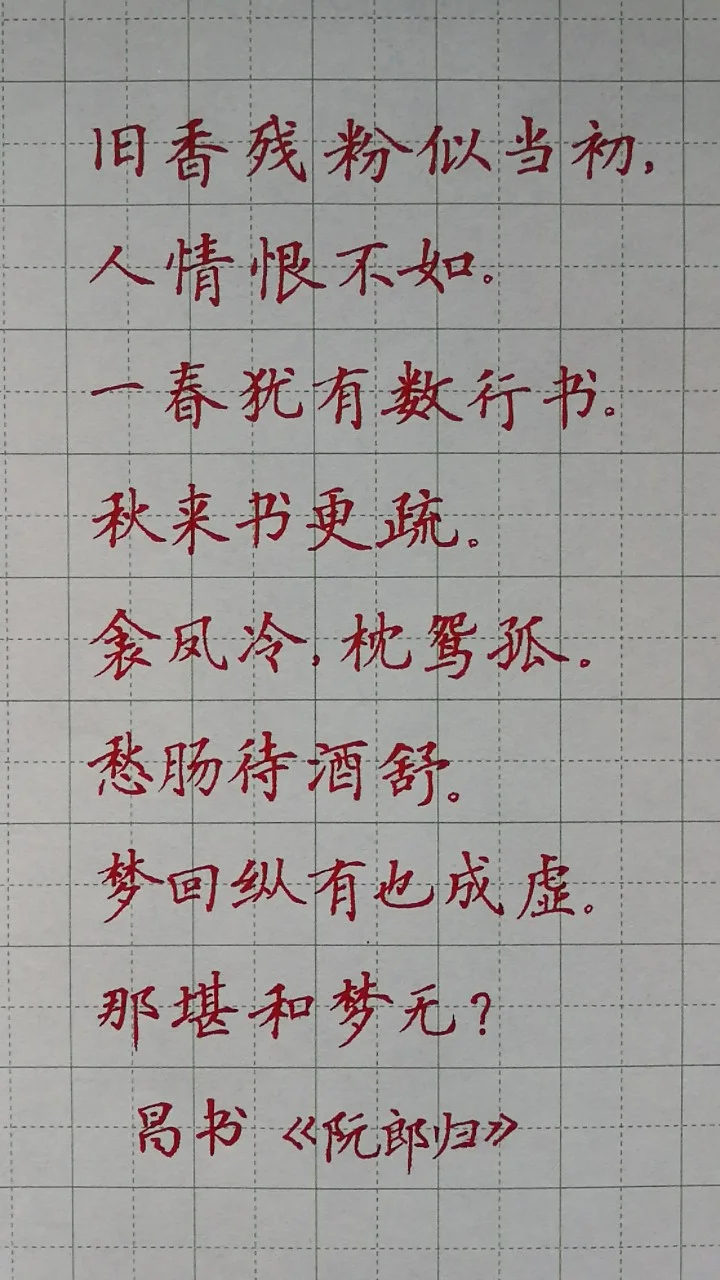 旧香残粉似当初，
人情恨不如。
一春犹有数行书。
秋来书更疏。
衾凤冷，枕鸳孤。
愁肠待酒舒。
梦回纵有也成虚。
那堪和梦无？
昌书《阮郎归》